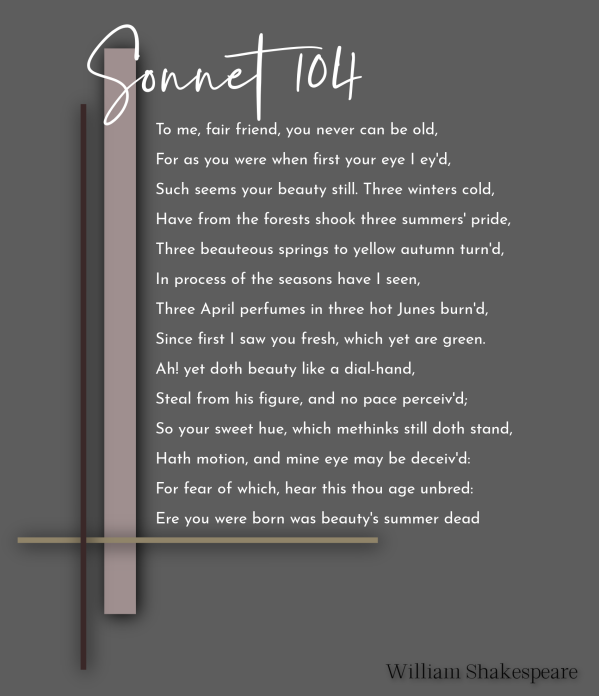 Sonnet 104
To me, fair friend, you never can be old,
For as you were when first your eye I ey'd,
Such seems your beauty still. Three winters cold,
Have from the forests shook three summers' pride,
Three beauteous springs to yellow autumn turn'd,
In process of the seasons have I seen,
Three April perfumes in three hot Junes burn'd,
Since first I saw you fresh, which yet are green.
Ah! yet doth beauty like a dial-hand,
Steal from his figure, and no pace perceiv'd;
So your sweet hue, which methinks still doth stand,
Hath motion, and mine eye may be deceiv'd:
For fear of which, hear this thou age unbred:
Ere you were born was beauty's summer dead
William Shakespeare